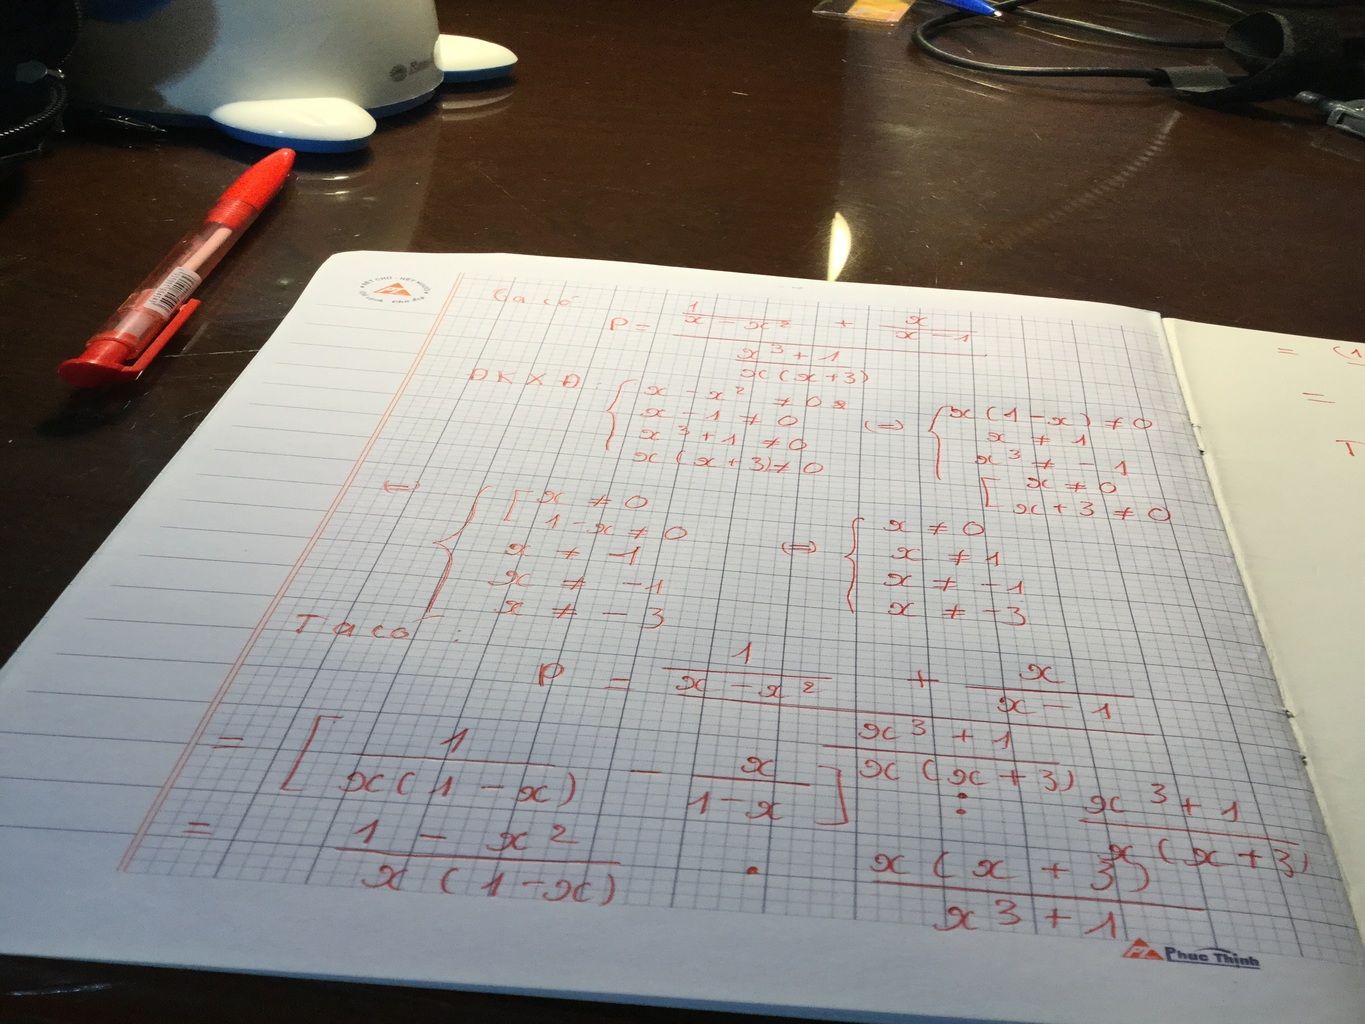 Ta có
P = \frac{\frac{1}{x - x^2} + \frac{x}{x - 1}}{\frac{x^3 + 1}{x(x+3)}}
ĐKXĐ: { x - x² ≠ 0 ; x - 1 ≠ 0 ; x³ + 1 ≠ 0 ; x(x+3) ≠ 0 ⇔ { x(1-x) ≠ 0 ; x ≠ 1 ; x³ ≠ -1 ; [ x ≠ 0 ; x+3 ≠ 0
⇔ { [ x ≠ 0 ; 1-x ≠ 0 ; x ≠ -1 ; x ≠ -1 ; x ≠ -3 ⇔ { x ≠ 0 ; x ≠ 1 ; x ≠ -1 ; x ≠ -3
Ta có:
P = \frac{\frac{1}{x - x^2} + \frac{x}{x - 1}}{\frac{x^3 + 1}{x(x+3)}}
= [ \frac{1}{x(1-x)} - \frac{x}{1-x} ] : \frac{x^3 + 1}{x(x+3)}
= \frac{1 - x^2}{x(1-x)} . \frac{x(x+3)}{x^3 + 1}
Phuc Thinh
= (1
=
T